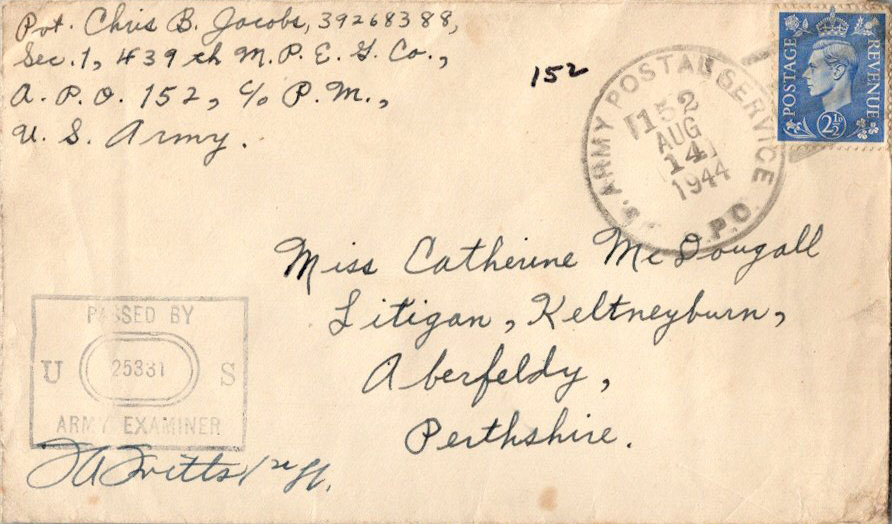 Pvt. Chris B. Jacobs, 39268388,
Sec. 1, 439th M. P. E. G. Co.,
A. P. O. 152, c/o P. M.,
U. S. Army.
152
POSTAGE REVENUE
2½D
U.S. ARMY POSTAL SERVICE
152
AUG
14
1944
A.P.O.
Miss Catherine McDougall
Litigan, Keltneyburn,
Aberfeldy,
Perthshire.
PASSED BY
U 25331 S
ARMY EXAMINER